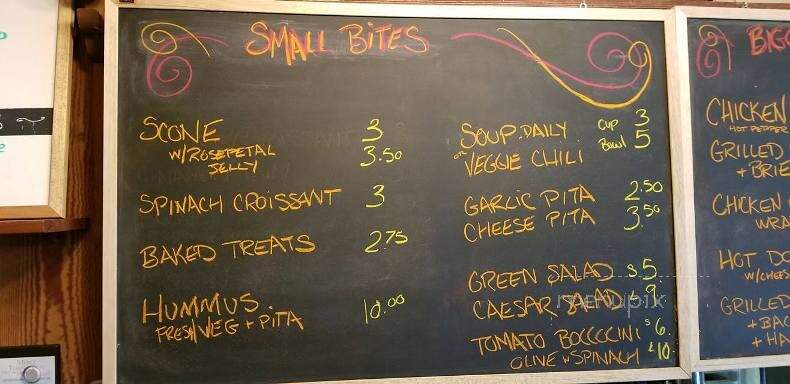 SMALL BITES
SCONE 3
W/ROSEPETAL JELLY 3.50
SPINACH CROISSANT 3
BAKED TREATS 2.75
HUMMUS. 10.00
FRESH VEG + PITA
SOUP.DAILY Cup 3
or VEGGIE CHILI Bowl 5
GARLIC PITA 2.50
CHEESE PITA 3.50
GREEN SALAD $5.
CAESAR SALAD 9
TOMATO BOCCOCINI $6.
OLIVE w SPINACH 10
BIGG
CHICKEN
HOT PEPPER
GRILLED
+ BRIE
CHICKEN
WRA
HOT DO
W/CHEES
GRILLED
+ BAC
+ HA
menupix